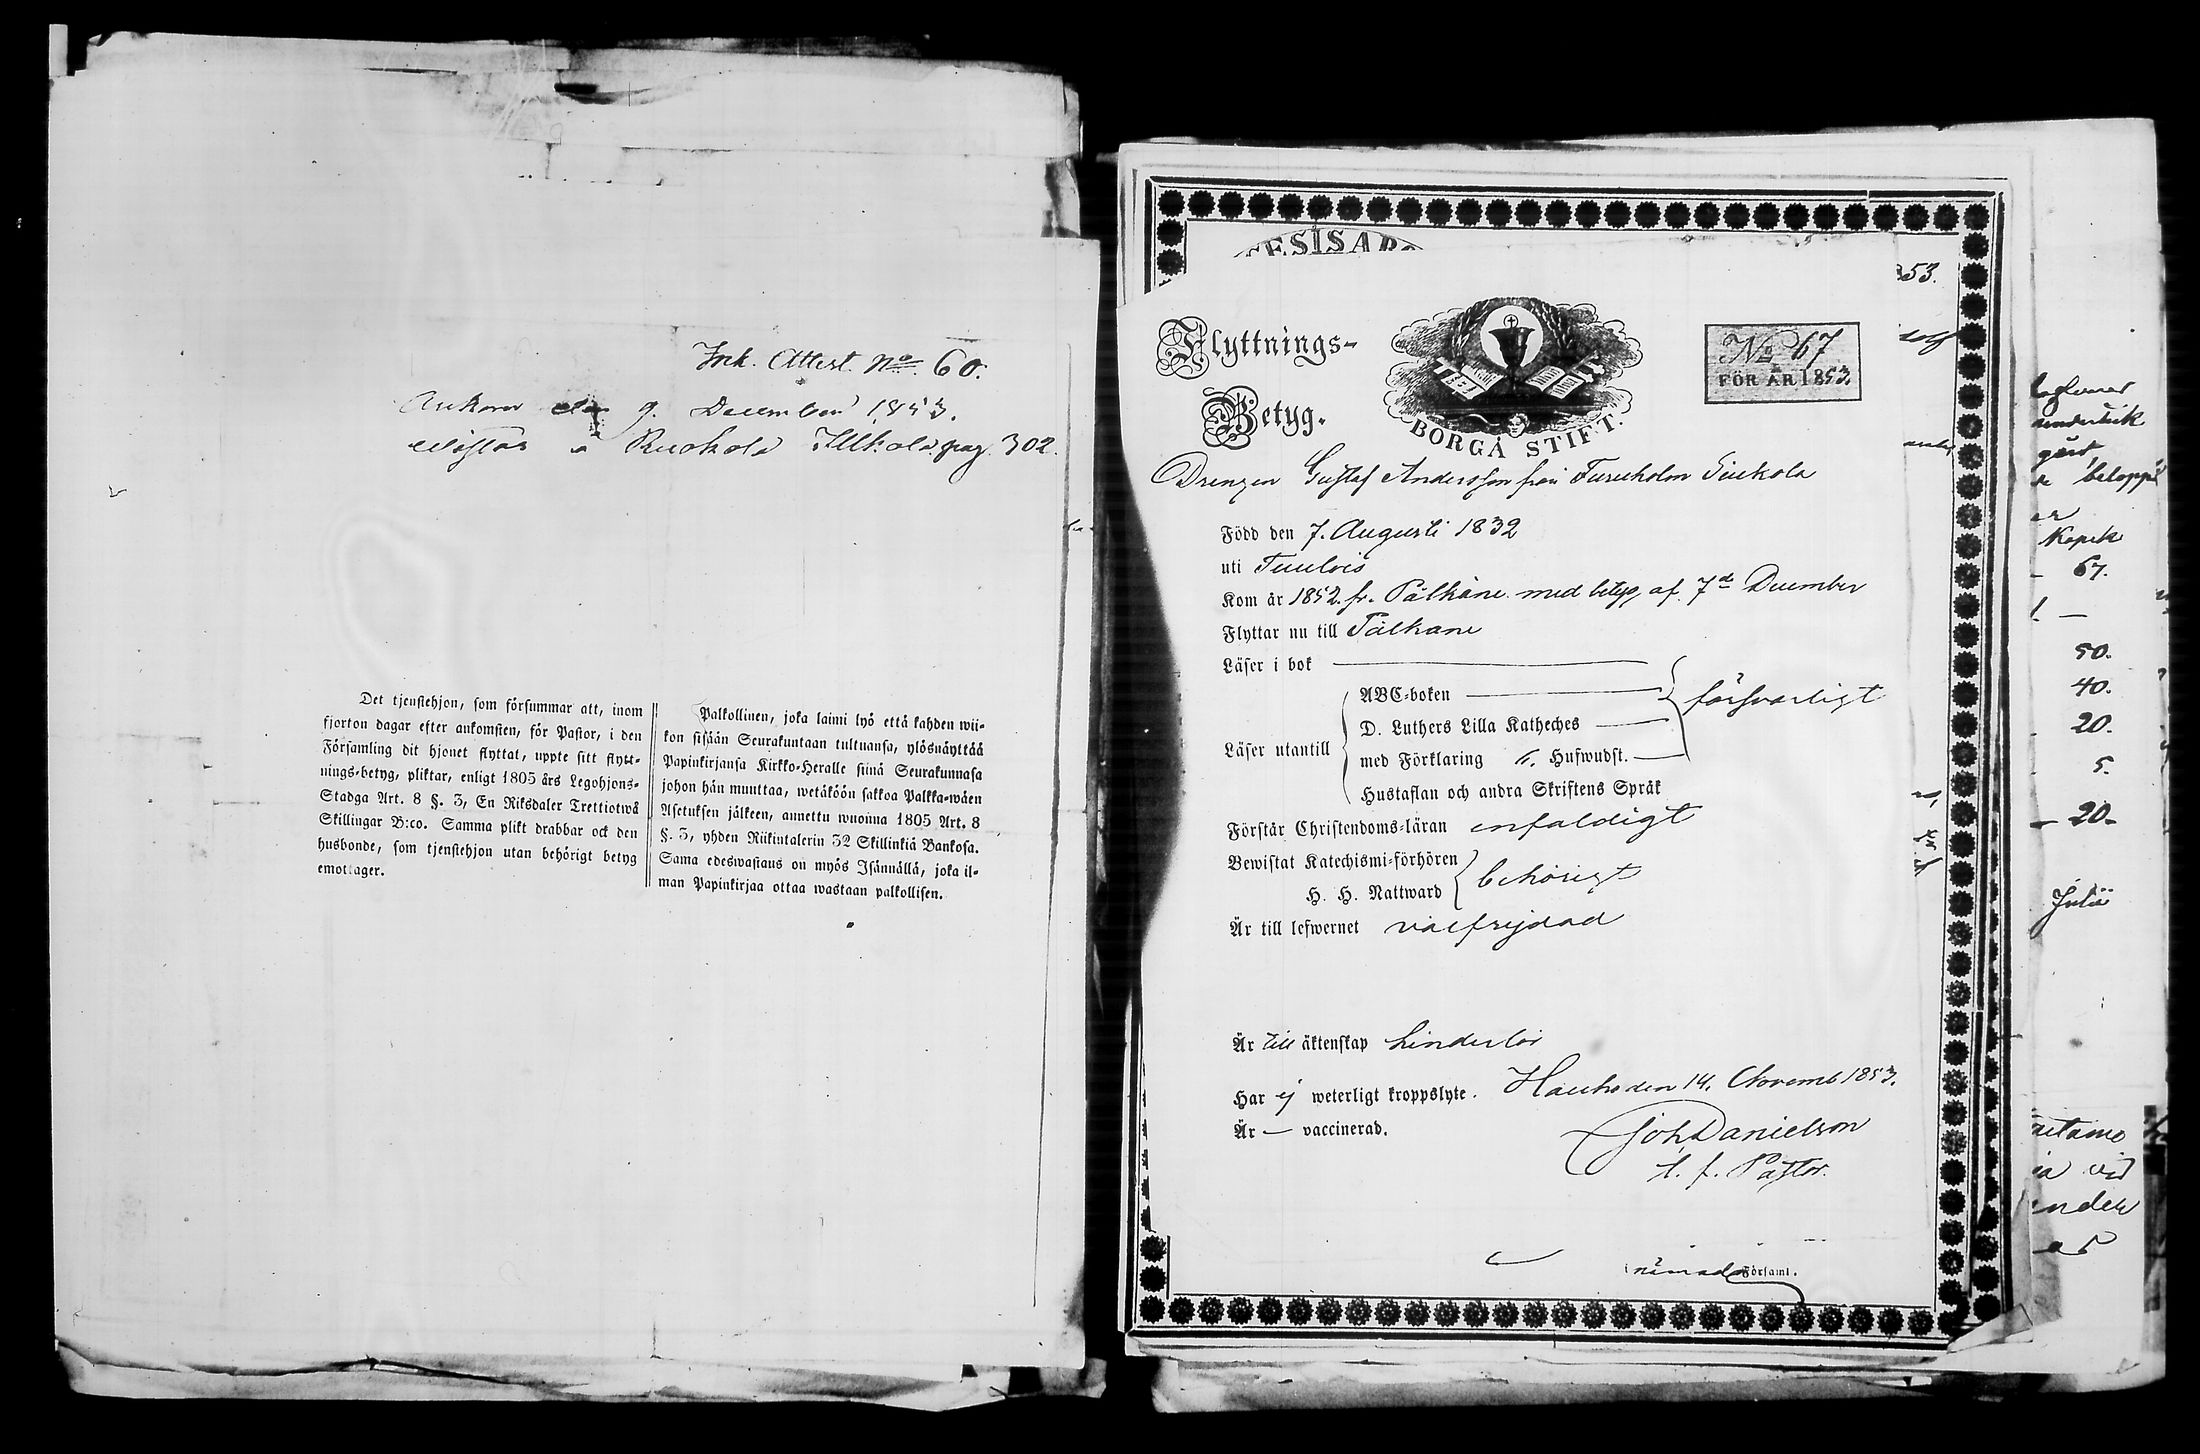 Ink. Attest. No 60.
Ankom den 9. December 1853.
Wistas a Ruokola Illkola pag. 302.
Det tjenstehjon, som försummar att, inom
fjorton dagar efter ankomsten, för Pastor, i den
Församling dit hjonet flyttat, uppte sitt flytt-
nings-betyg, pliktar, enligt 1805 års Legohjons-
Stadga Art. 8 §. 3, En Riksdaler Trettiotwå
Skillingar B:co. Samma plikt drabbar ock den
husbonde, som tjenstehjon utan behörigt betyg
emottager.
Palkollinen, joka laimi lyö että kahden wii-
kon sisään Seurakuntaan tultuansa, ylösnäyttää
Papinkirjansa Kirkko-Heralle siinä Seurakunnasa
johon hän muuttaa, wetäköön sakkoa Palkka-wäen
Asetuksen jälkeen, annettu wuonna 1805 Art. 8
§. 3, yhden Riikintalerin 32 Skillinkiä Bankosa.
Sama edeswastaus on myös Isännällä, joka il-
man Papinkirjaa ottaa wastaan palkollisen.
53.
Flyttnings-
Betyg.
BORGÅ STIFT.
No 67
FÖR ÅR 1853.
Drengen Gustaf Andersson från Furuholm Sinkola
Född den 7. Augusti 1832
uti Tuulois
Kom år 1852. fr. Pälkäne med betyg af 7d December
Flyttar nu till Pälkäne
Läser i bok
Läser utantill
ABC-boken
D. Luthers Lilla Katheches
med Förklaring 6. Hufwudst.
Hustaflan och andra Skriftens Språk
försvarligt
Förstår Christendoms-läran enfaldigt
Bewistat Katechismi-förhören
H. H. Nattward
behörigt
Är till lefwernet välfrejdad
Är till äktenskap hinderlös
Har ej weterligt kroppslyte. Hauho den 14. Novemb 1853.
Är — vaccinerad.
Joh Danielson
t. f. Pastor.
i nämnda Församl.
beloppe
Kopek
67.
1. —
50.
40.
20.
5.
20
Julii